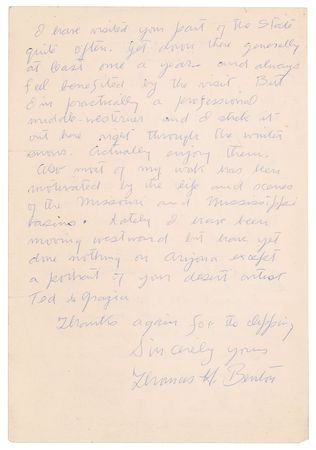 I have visited your part of the State
quite often. Get down there generally
at least once a year and always
feel benefited by the visit. But
I'm practically a professional
middle-westerner and I stick it
out here right through the winter
snows. Actually enjoy them.
Also most of my work has been
motivated by the life and scenes
of the Missouri and Mississippi
basins. Lately I have been
moving westward but have yet
done nothing on Arizona except
a portrait of your desert artist
Ted de Grazia
Thanks again for the clipping
Sincerely yours
Thomas H. Benton